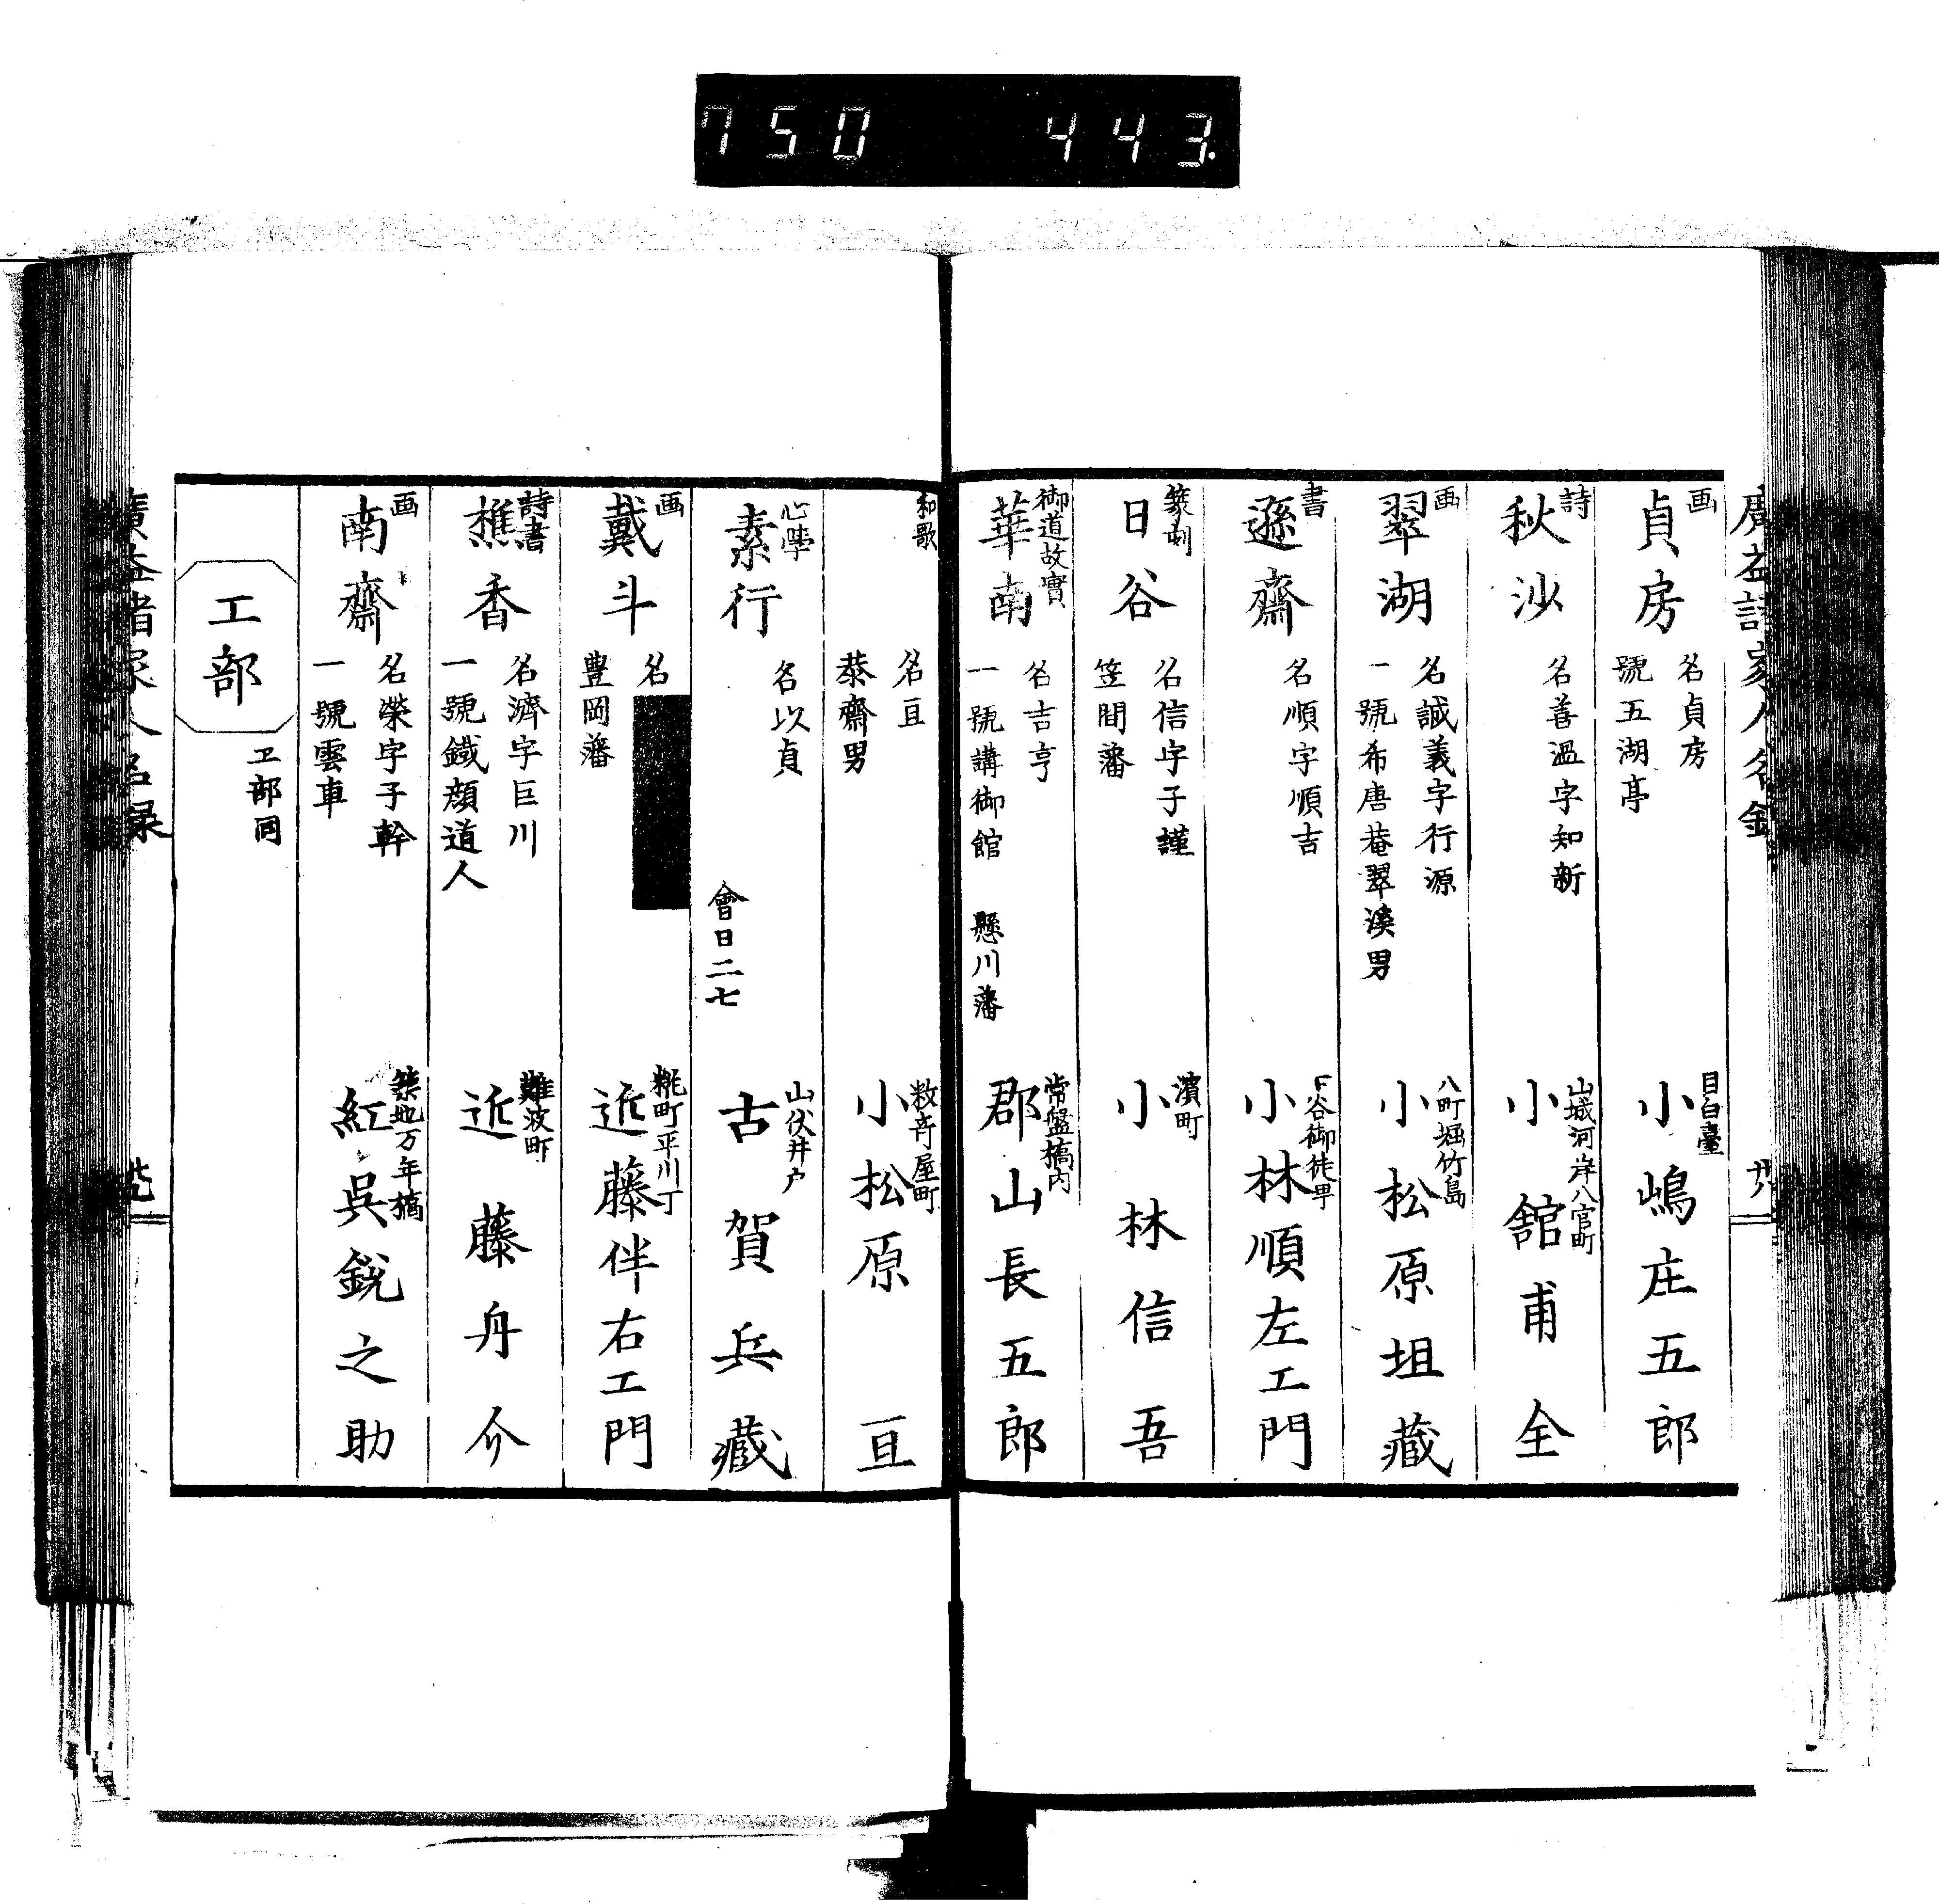 750 443.
廣益諸家人名録
画
貞房
名貞房
號五湖亭
目白臺
小嶋庄五郎
詩
秋沙
名善温字知新
山城河岸八官町
小舘甫全
画
翠湖
名誠義字行源
一號希唐菴翠溪男
八町堀竹島
小松原坦藏
書
遜齋
名順字順吉
下谷御徒町
小林順左工門
篆刻
日谷
名信字子謹
笠間藩
濱町
小林信吾
御道故實
華南
名吉亨
一號講御館 懸川藩
常盤橋内
郡山長五郎
和歌
名亘
恭齋男
数寄屋町
小松原 亘
心學
素行
名以貞
會日二七
山伏井戸
古賀兵藏
画
戴斗
名
豊岡藩
糀町平川丁
近藤伴右工門
詩書
樵香
名濟字巨川
一號鐵顔道人
難波町
近藤舟介
画
南齋
名榮字子幹
一號雲車
築地万年橋
紅呉鋭之助
工部
ヱ部同
廣益諸家人名録